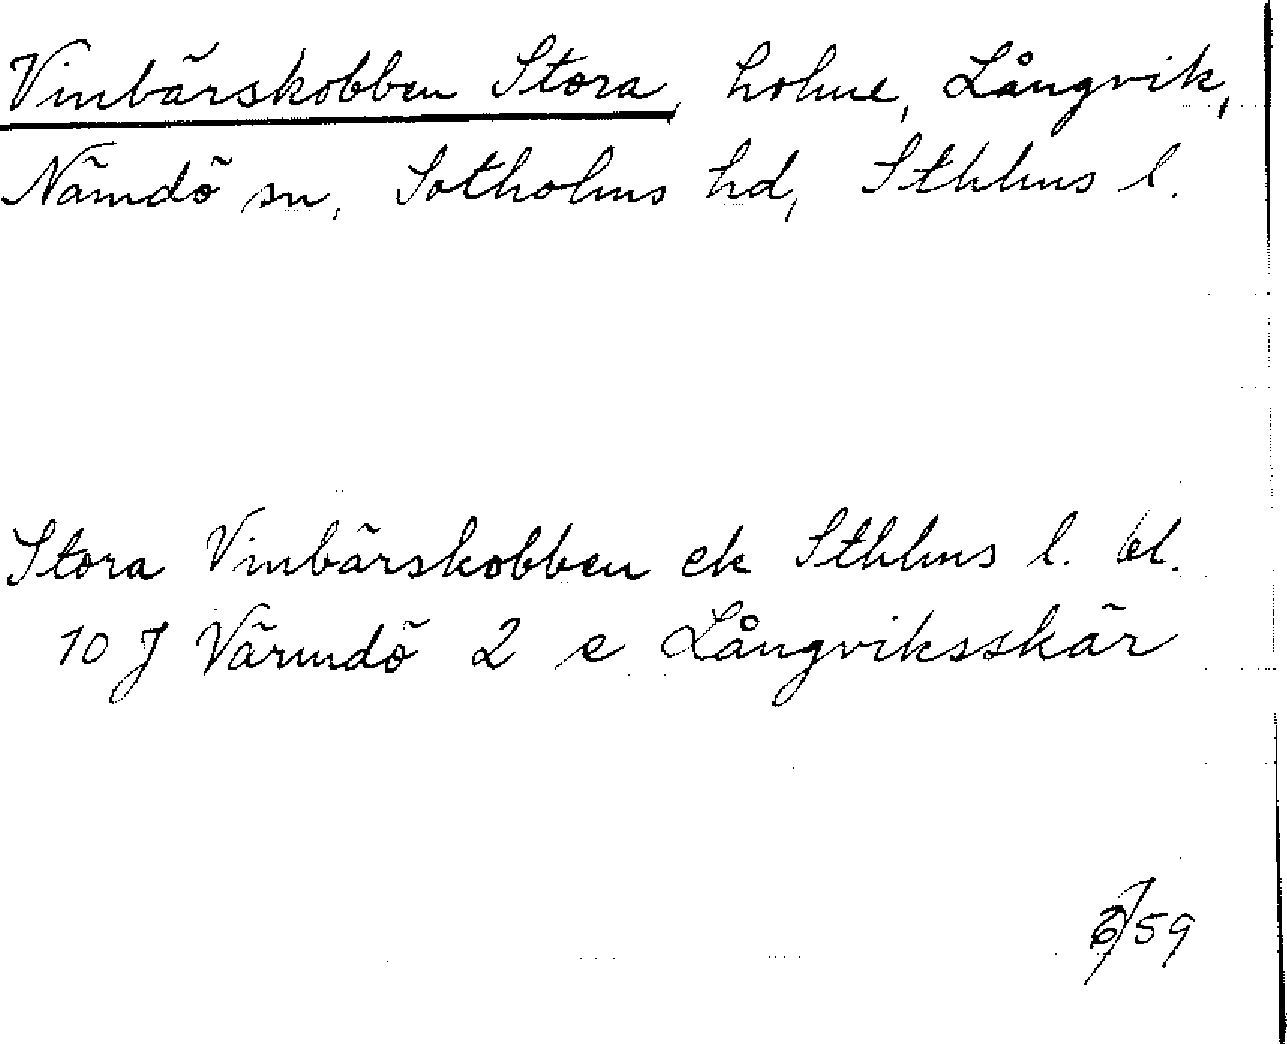 Vinbärskobben Stora, holme, Långvik,
Nämdö sn, Sotholms hd, Sthlms l.
Stora Vinbärskobben ek Sthlms l. bl.
10 J Värmdö 2 e Långviksskär
/59